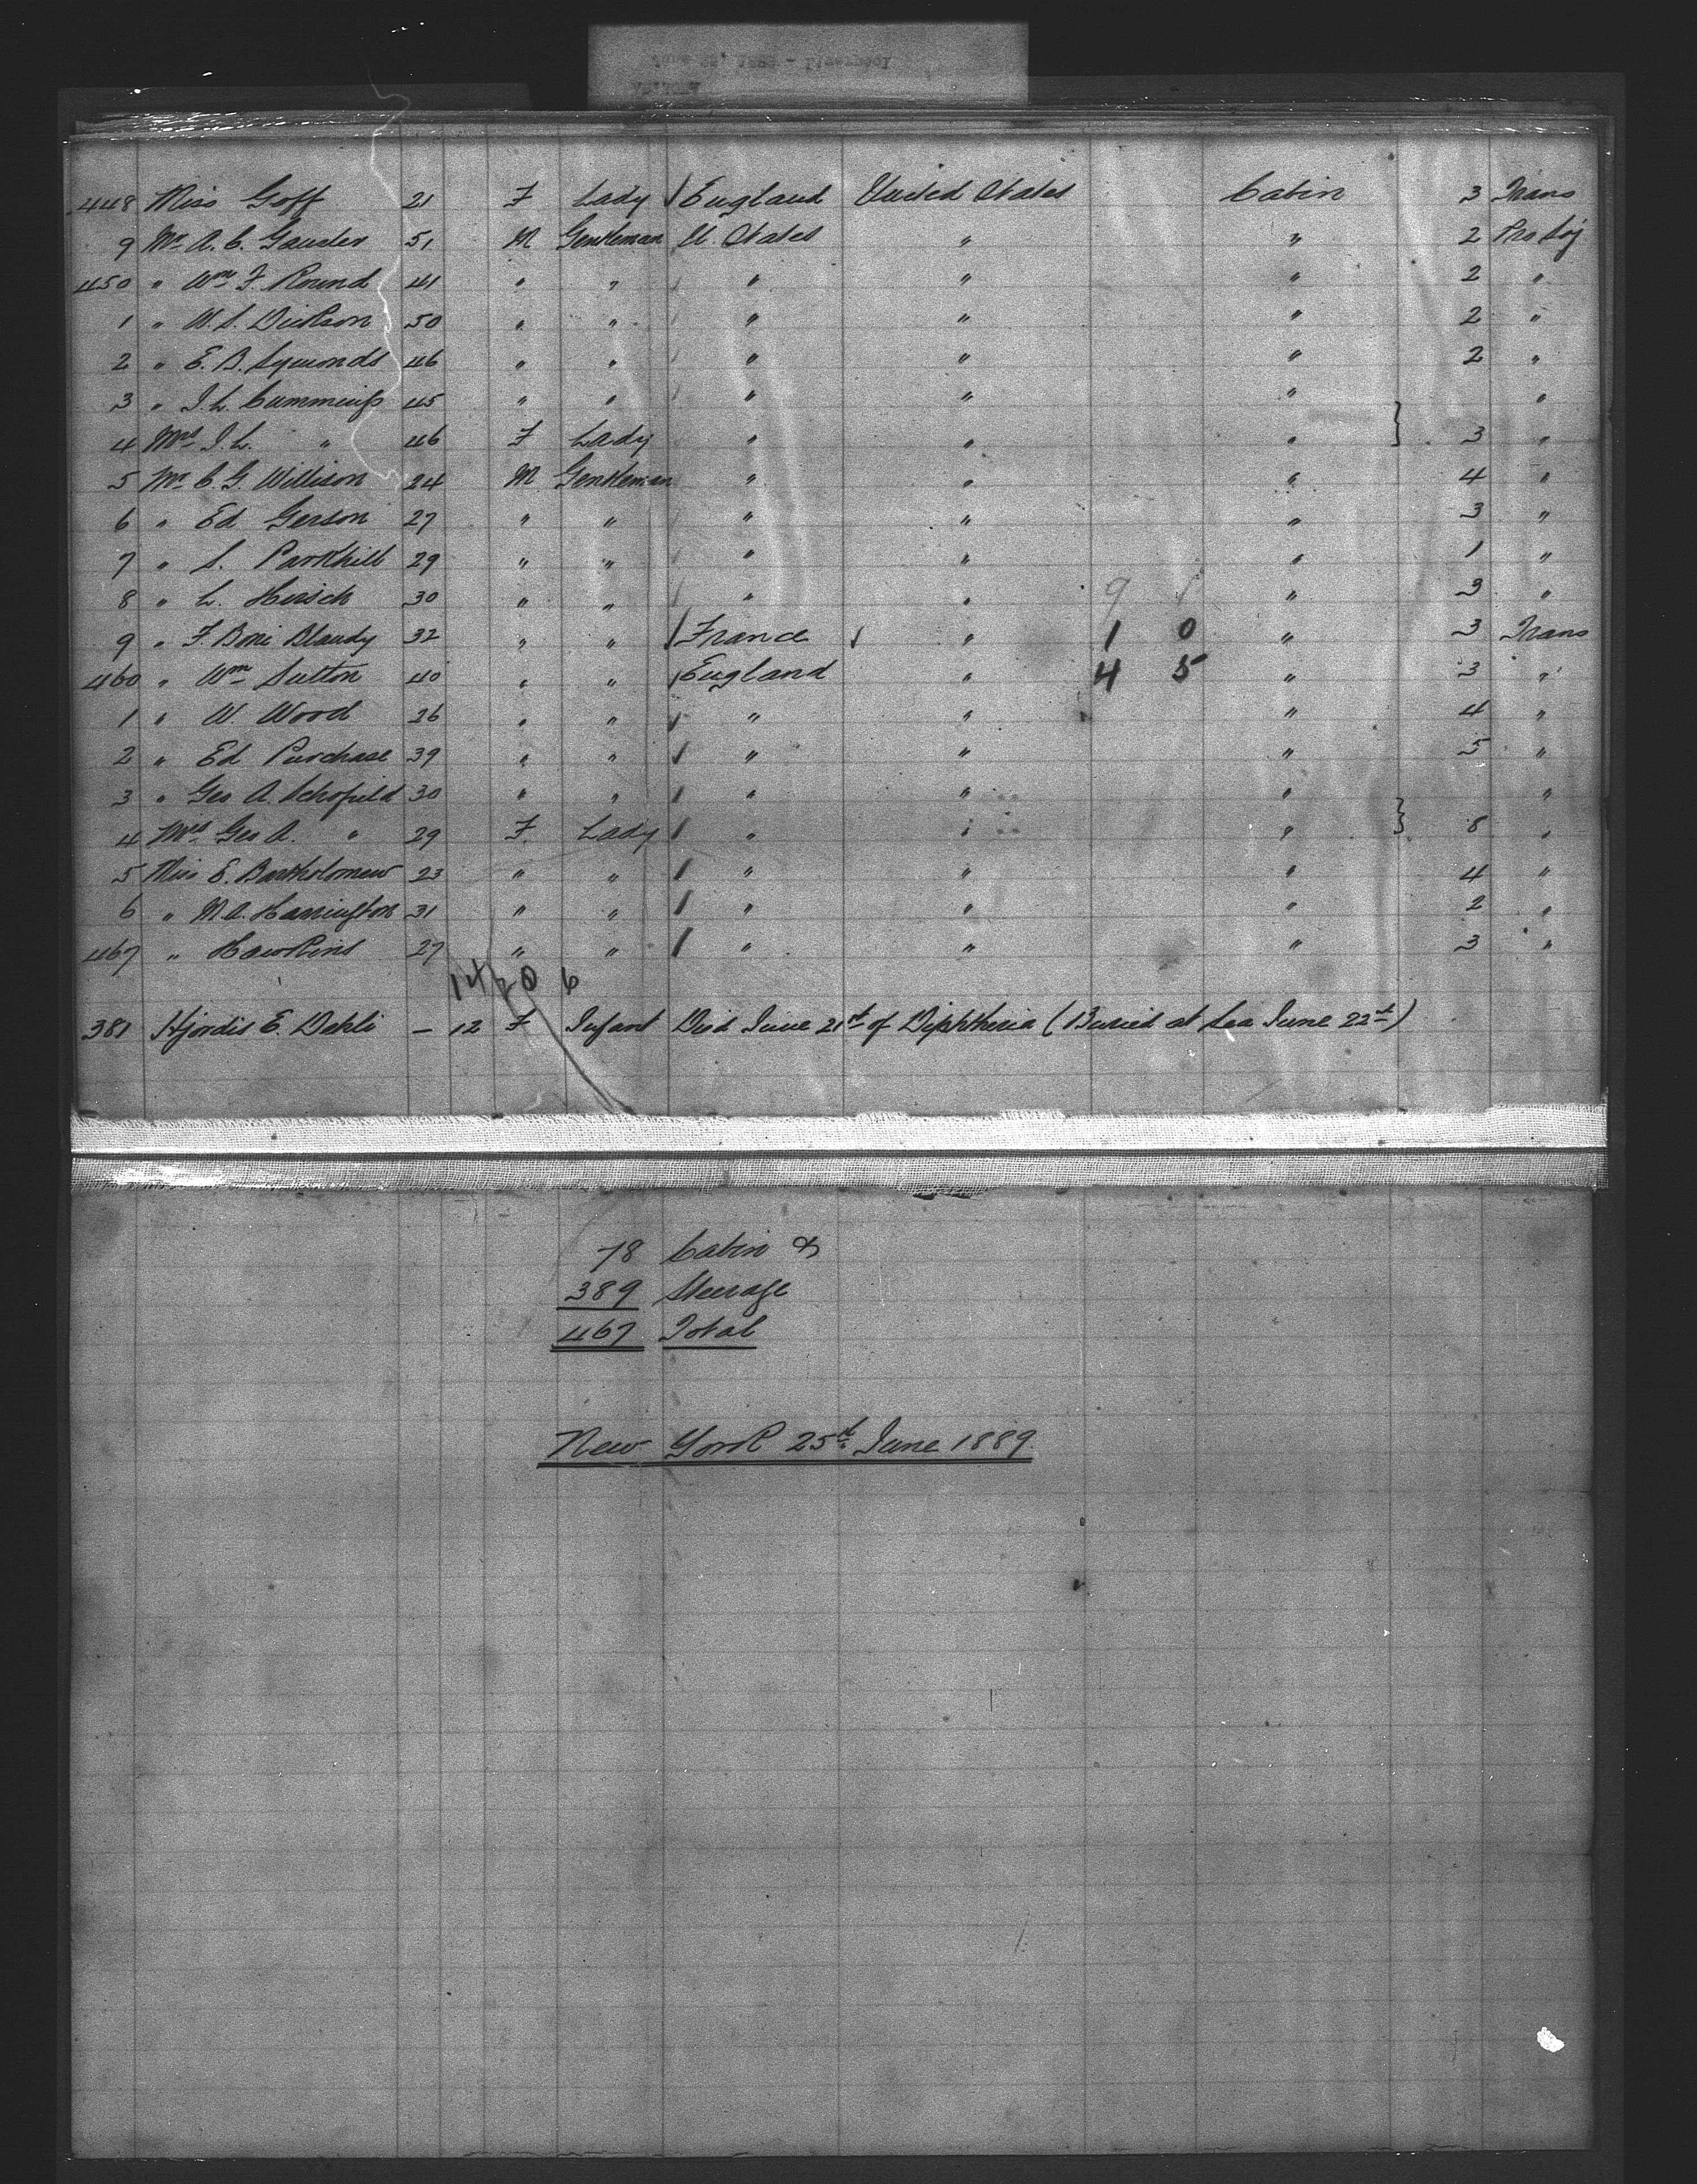 June 25, 1889 - Liverpool
448 Miss Goff 21 F Lady England United States Cabin 3 Trans
9 Mr. A. C. Gauder 51 M Gentleman U. States " " 2 Pro Soj
450 " Wm F. Round 41 " " " " " 2 "
1 " W. S. Dickson 50 " " " " " 2 "
2 " E. B. Symonds 46 " " " " " 2 "
3 " J. L. Cummings 45 " " " " " "
4 Mrs J. L. " 46 F Lady " " " } 3 "
5 Mr C. G. Willison 24 M Gentleman " " " 4 "
6 " Ed Gerson 27 " " " " " 3 "
7 " S. Parkhill 29 " " " " " 1 "
8 " L. Hirsch 30 " " " " 9 1 " 3 "
9 " F. Boni Blaudy 32 " " France " 1 0 " 3 Trans
460 " Wm Sutton 40 " " England " 4 5 " 3 "
1 " W. Wood 36 " " " " " 4 "
2 " Ed Purchase 39 " " " " " 5 "
3 " Geo A. Schofield 30 " " " " " "
4 Mrs Geo A. " 29 F. Lady " " " } 8 "
5 Miss E. Bartholomew 23 " " " " " 4 "
6 " M. A. Harrington 31 " " " " " 2 "
467 " Hawkins 27 " " " " " 3 "
381 Hjordis E. Dahli — 12 F Infant Died June 21st of Diphtheria (Buried at Sea June 22nd)
78 Cabin &
389 Steerage
467 Total
New York 25th June 1889